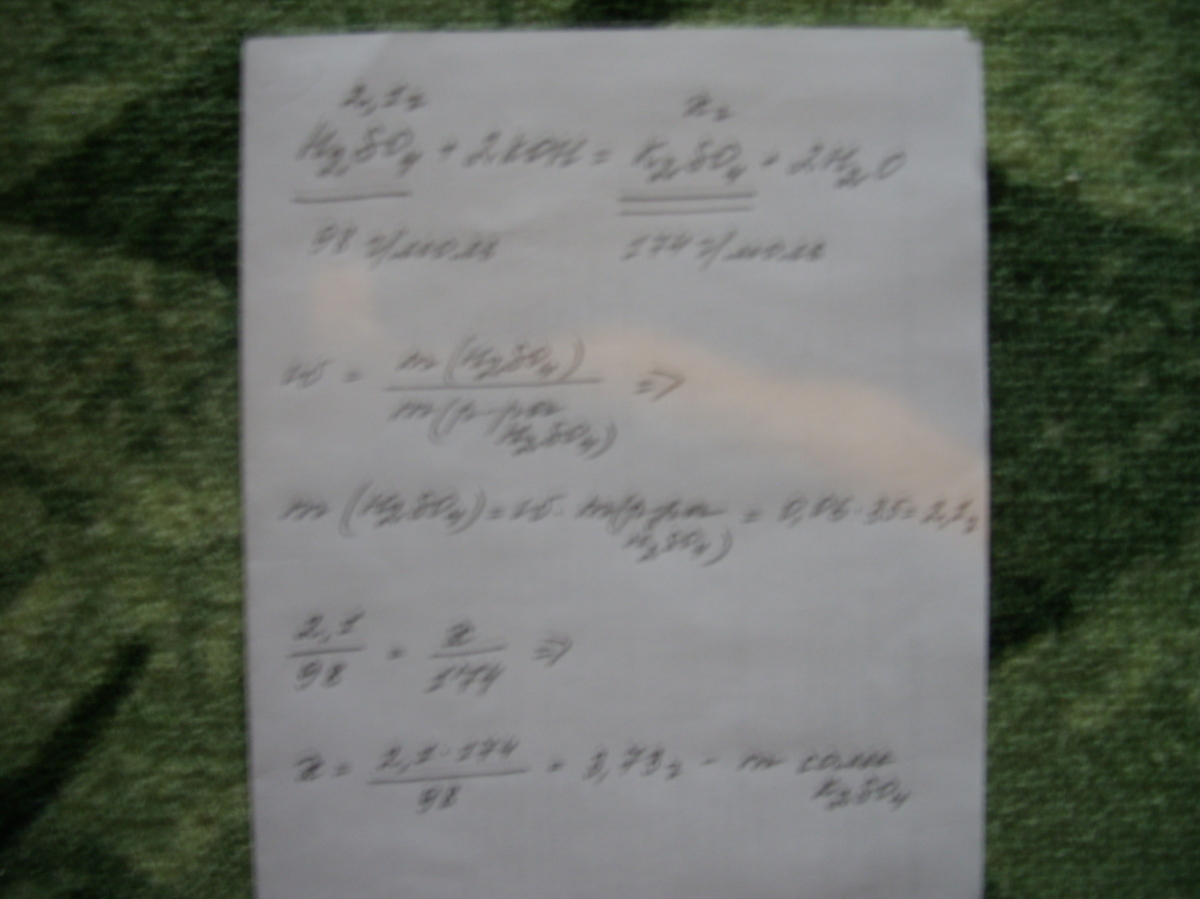 2,1г хг
H₂SO₄ + 2KOH = K₂SO₄ + 2H₂O
98 г/моль 174 г/моль
ω = m(H₂SO₄) / m(р-ра H₂SO₄) =>
m (H₂SO₄) = ω · m(р-ра H₂SO₄) = 0,06 · 35 = 2,1г
2,1 / 98 = x / 174 =>
x = 2,1 · 174 / 98 = 3,73г - m соли K₂SO₄